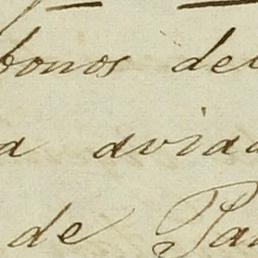 bonos de
a avia
de Pa